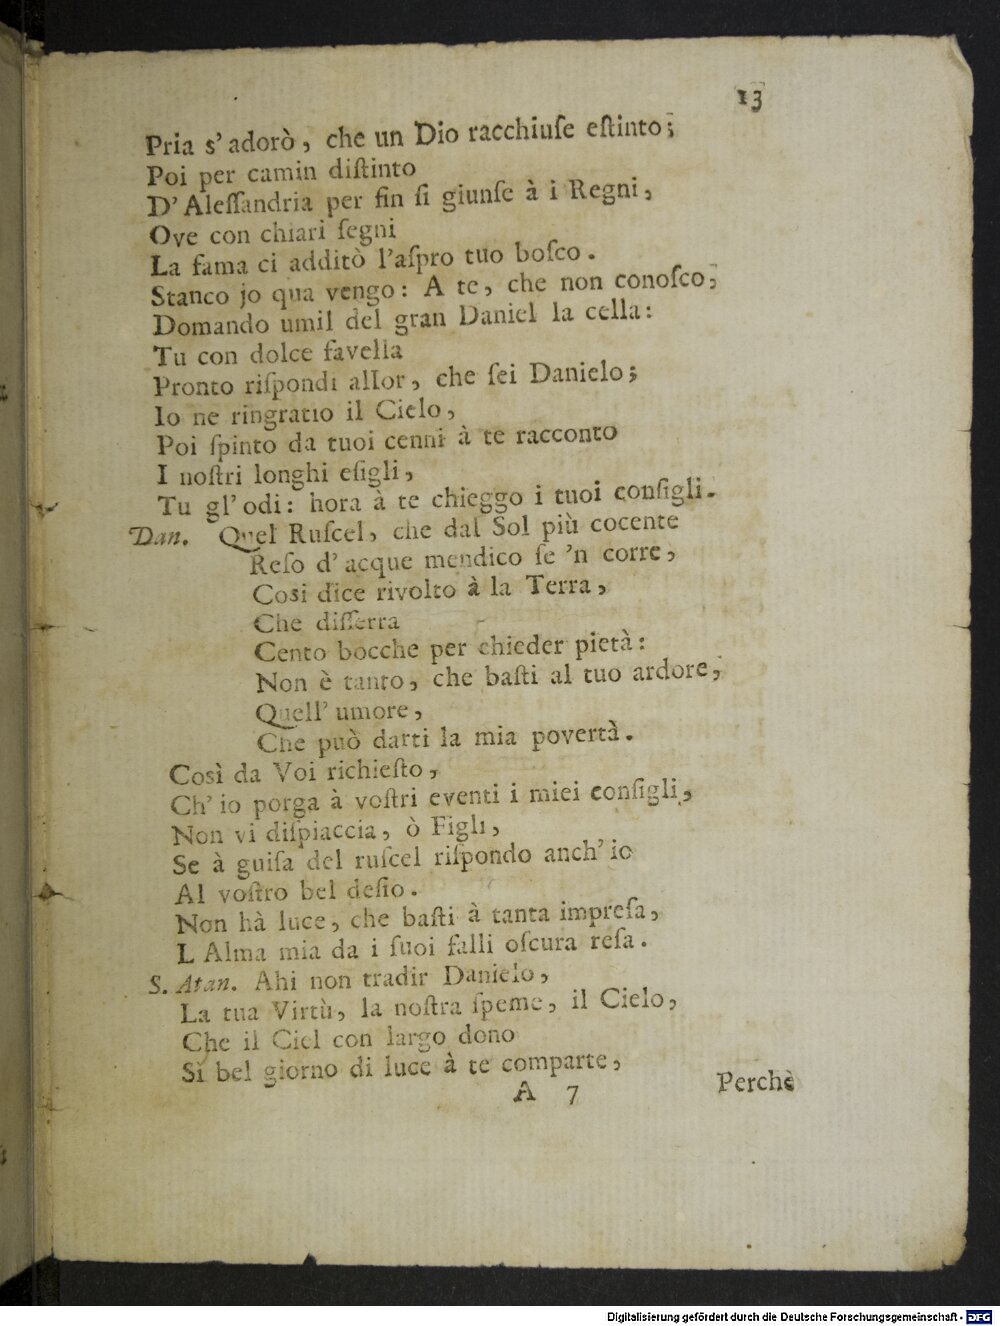 13
Pria s'adorò, che un Dio racchiuſe eſtinto;
Poi per camin diſtinto
D'Aleſſandria per fin ſi giunſe à i Regni,
Ove con chiari ſegni
La fama ci additò l'aſpro tuo boſco.
Stanco jo qua vengo: A te, che non conoſco,
Domando umil del gran Daniel la cella:
Tu con dolce favella
Pronto riſpondi allor, che ſei Danielo;
Io ne ringratio il Cielo,
Poi ſpinto da tuoi cenni à te racconto
I noſtri longhi eſigli,
Tu gl'odi: hora à te chieggo i tuoi conſigli.
Dan. Quel Ruſcel, che dal Sol più cocente
Reſo d'acque mendico ſe 'n corre,
Cosi dice rivolto à la Terra,
Che diſſerra
Cento bocche per chieder pietà:
Non è tanto, che baſti al tuo ardore,
Quell' umore,
Che può darti la mia povertà.
Così da Voi richieſto,
Ch' io porga à voſtri eventi i miei conſigli,
Non vi diſpiaccia, ò Figli,
Se à guiſa del ruſcel riſpondo anch' io
Al voſtro bel deſio.
Non hà luce, che baſti à tanta impreſa,
L Alma mia da i ſuoi falli oſcura reſa.
S. Atan. Ahi non tradir Danielo,
La tua Virtù, la noſtra ſpeme, il Cielo,
Che il Ciel con largo dono
Sì bel giorno di luce à te comparte,
A 7 Perchè
Digitalisierung gefördert durch die Deutsche Forschungsgemeinschaft - DFG